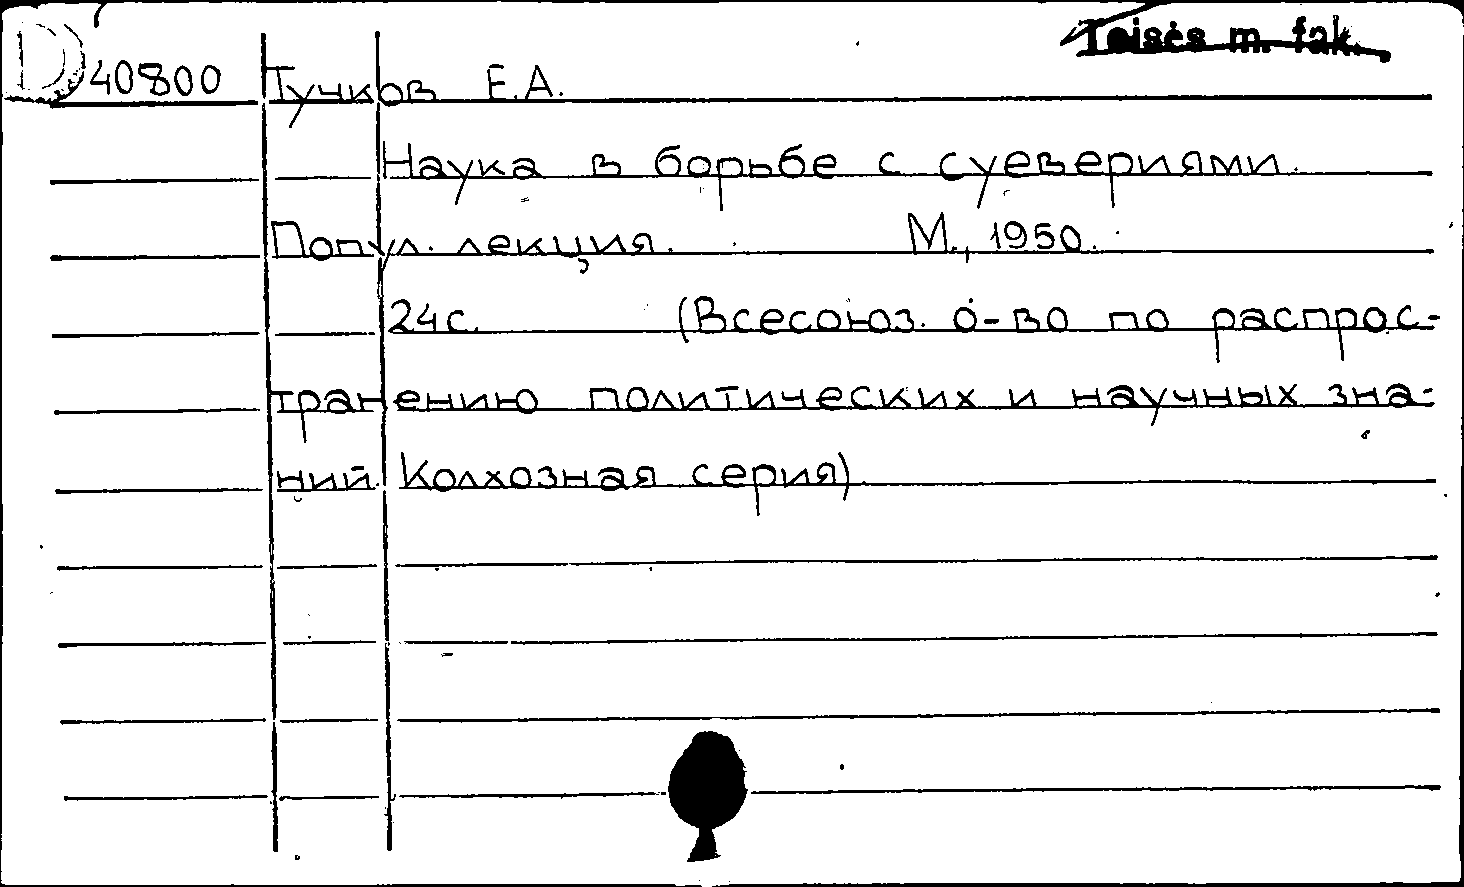 Teisės m. fak.
D 40800 Тучков Е.А.
Наука в борьбе с суевериями.
Попул. лекция. М., 1950.
24с. (Всесоюз. о-во по распрос-
транению политических и научных зна-
ний. Колхозная серия)